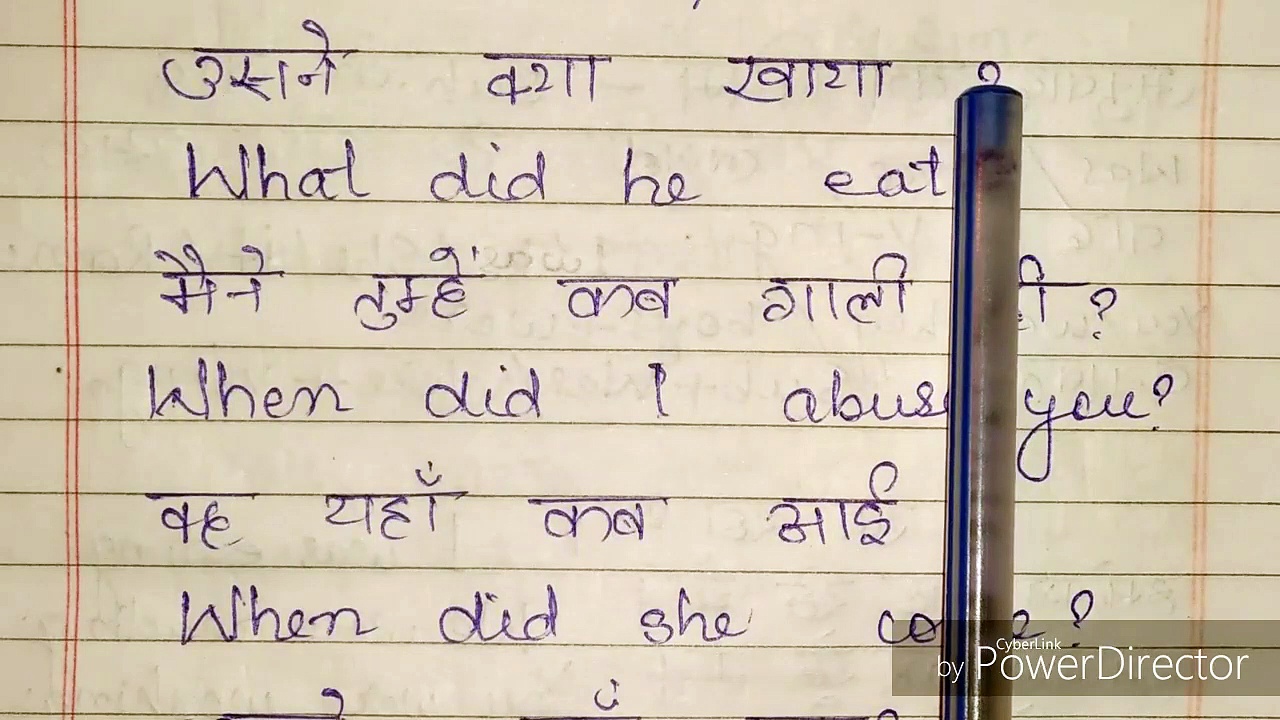 उसने क्या खाया ?
What did he eat
मैने तुम्हें कब गाली ?
When did I abuse you?
वह यहाँ कब आई
When did she come?
CyberLink
by PowerDirector